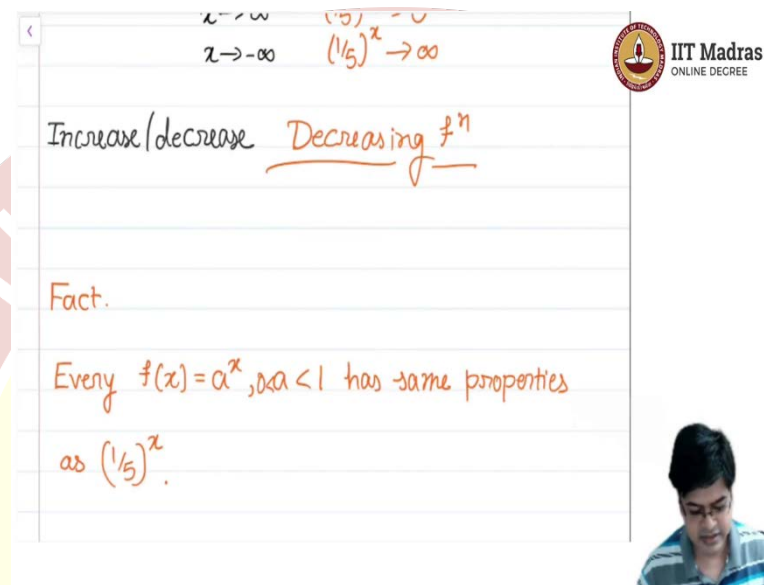 x→∞ (1/5)ˣ→0
x→-∞ (1/5)ˣ→∞
IIT Madras
ONLINE DEGREE
Increase/decrease Decreasing fⁿ
Fact.
Every f(x) = aˣ, 0<a<1 has same properties
as (1/5)ˣ.